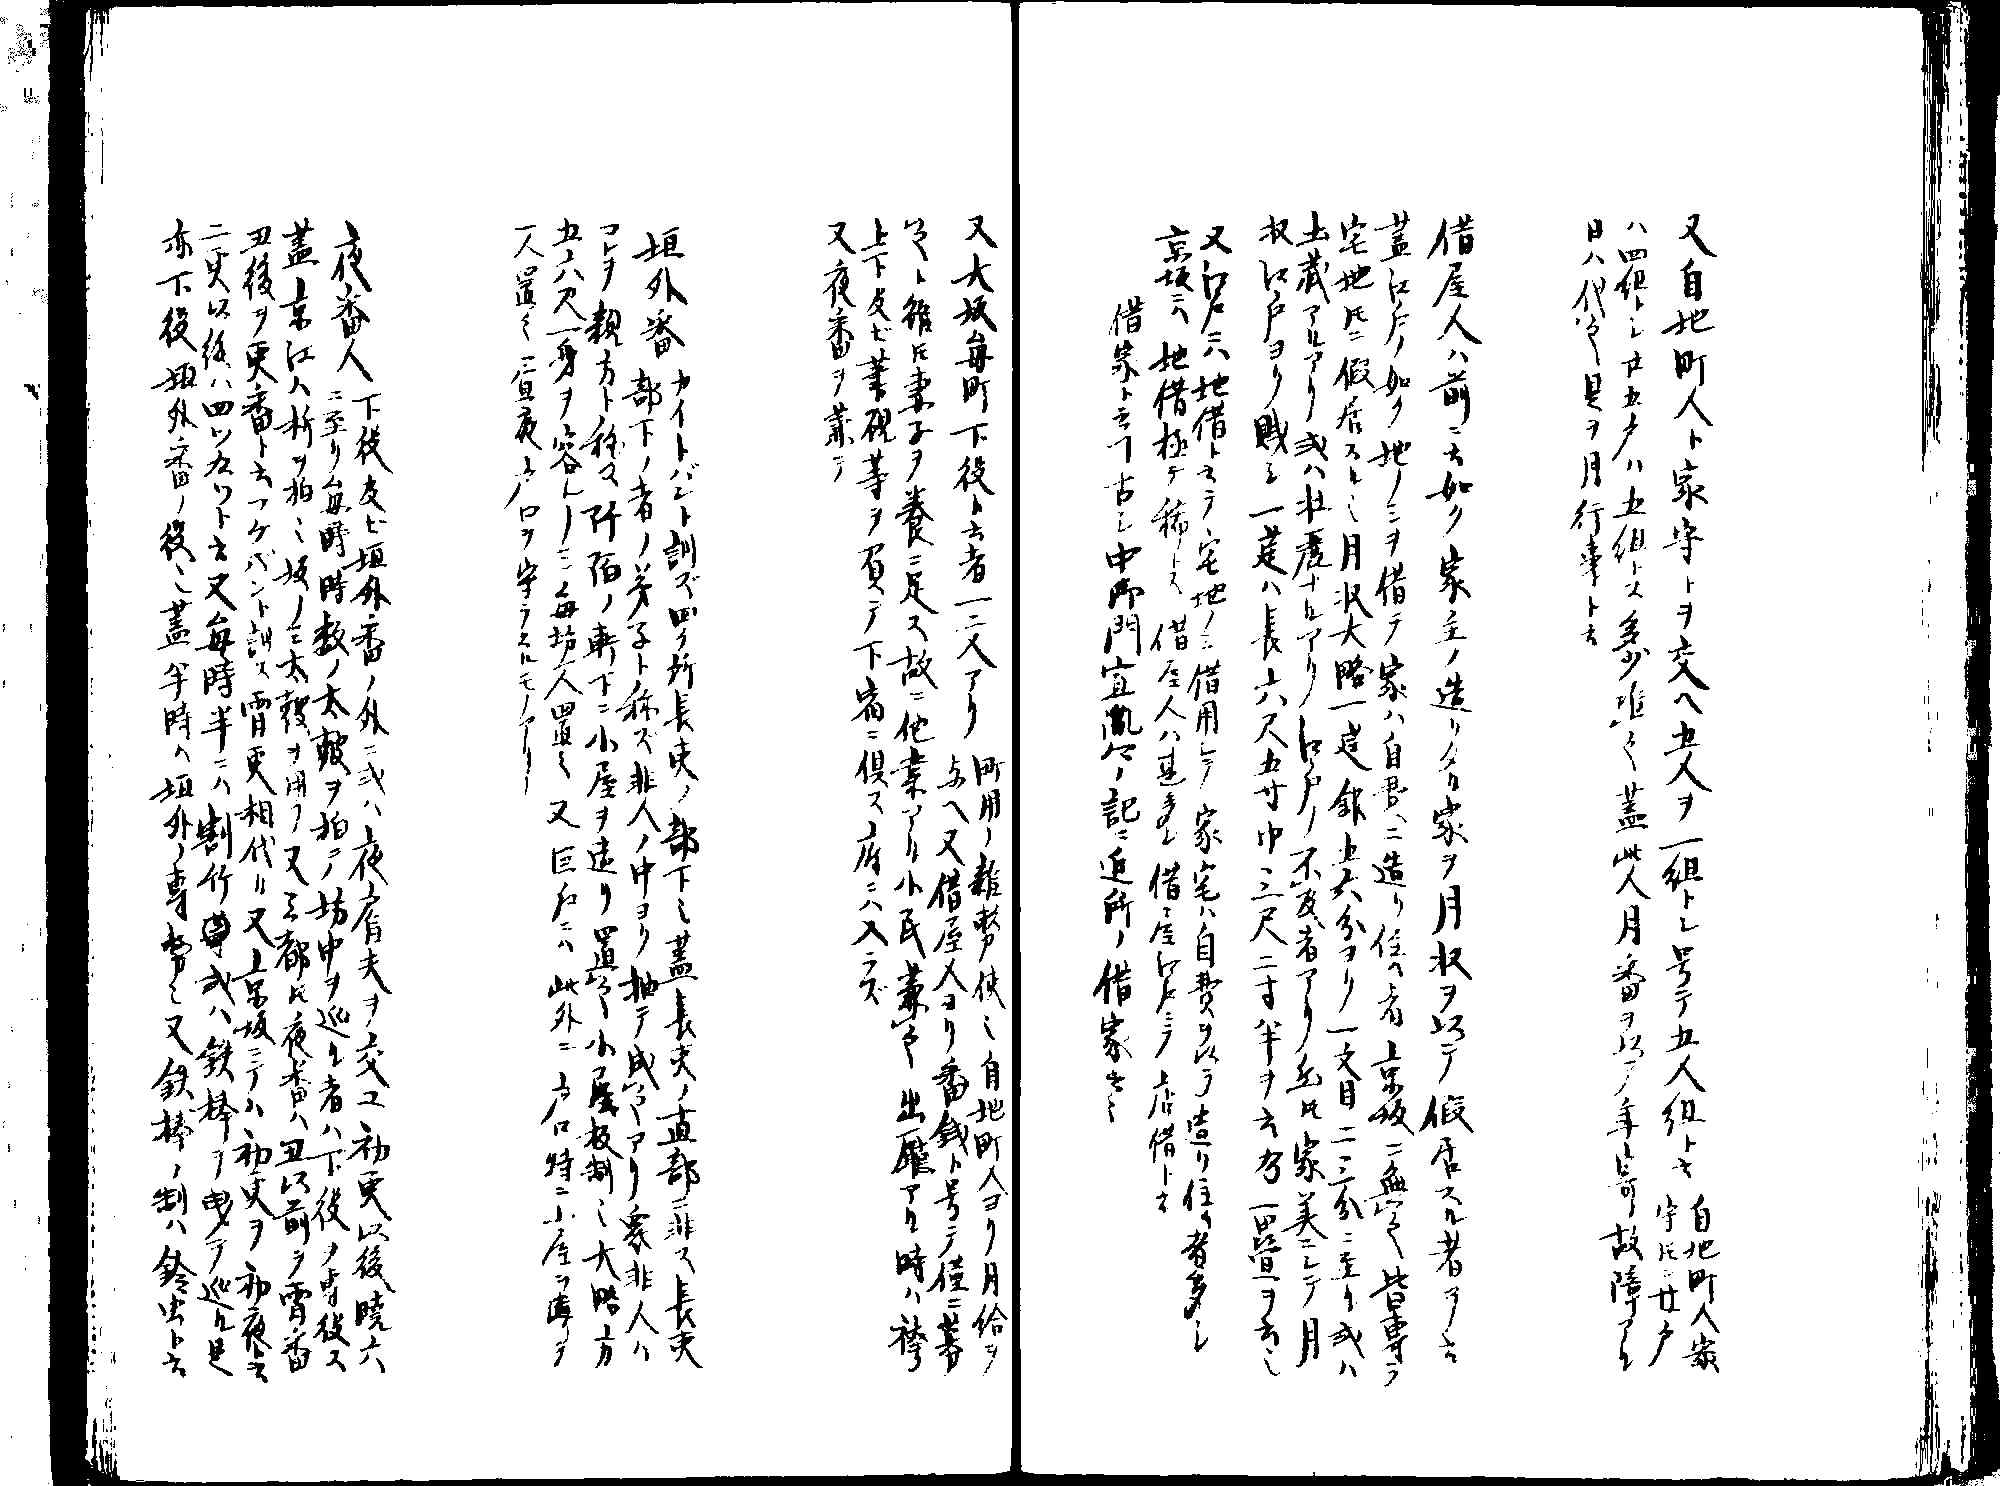 又自地町人ト家守トヲ交ヘ五人ヲ一組トシ号テ五人組ト云
自地町人家
守トモニ廿戸
ハ四組トシ廿五戸ハ五組トス多少准之蓋此人月番ヲ以テ年寄故障アル
日ハ代之是ヲ月行事ト云
借屋人ハ前ニ云如ク家主ノ造リタル家ヲ月収ヲ以テ假居スル者ヲ云
蓋江戸ノ如ク地ノミヲ借テ家ハ自費ニ造リ住ム者京坂ニ無之皆専ラ
宅地トモニ假居スル也月収大略一畳銀五六分ヨリ一文目二三分ニ至リ或ハ
土蔵アルアリ或ハ
アリ江戸ノ不及者アリ然トモ家美ニシテ月
収江戸ヨリ賎シ一畳ハ長六尺五寸巾三尺二寸半ヲ云乃一畳ヲ云也
又江戸ニハ地借ト云テ宅地ノミ借用シテ家宅ハ自費ヲ以テ造リ住ム者多シ
京坂ニハ地借極テ稀トス借屋人ハ甚多シ借屋江戸ニテ店借ト云
借家ト云コト古シ中御門宣胤卿ノ記ニ近所ノ借家云々
又大坂毎町下役ト云者一二人アリ
町用ノ雑費使也自地町人ヨリ月給ヲ
与ヘ又借屋人ヨリ番銭ト号テ僅ニ募
之ト雖トモ妻子ヲ養ニ足ス故ニ他業アリ小民兼之出雇アル時ハ袴
上下及ビ筆硯等ヲ負テ下宿ニ倶ス府ニハ入ラズ
又夜番ヲ兼テ
垣外番 カイトバント訓ズ四ケ所長吏ノ部下也蓋長吏ノ直部ニ非ス長吏
部下ノ者ノ弟子ト称ズ非人ノ中ヨリ抽テ成之アリ衆非人ハ
コレヲ親方ト称ス阡陌ノ軒下ニ小屋ヲ造リ置之小屋板制也大略方
五六尺一身ヲ容ルノミ毎坊一人置之又巨戸ニハ此外ニ戸口特ニ小屋ヲ
一人置之昼夜戸口ヲ守ラスルモノアリ
夜番人 下役及ビ垣外番ノ外ニ或ハ夜宵夫ヲ交ユ初更以後暁六
ニ至リ毎時時数ノ太鼓ヲ拍テ坊中ヲ巡ル者ハ下役ノ専役ス
蓋京江ハ柝ヲ拍也坂ノミ太鼓ヲ用フ又三都トモ夜番ハ丑以前ヲ宵番
丑後ヲ更番ト云フケバント訓ス宵更相代リ又京坂ニテハ初更ヲ初夜ト云
二更以後ハ四ツ九ツト云又毎時半ニハ割竹或ハ鉄棒ヲ曳テ巡ル是
亦下役垣外番ノ役也蓋半時ハ垣外ノ専務也又鉄棒ノ制ハ鈴虫ト云